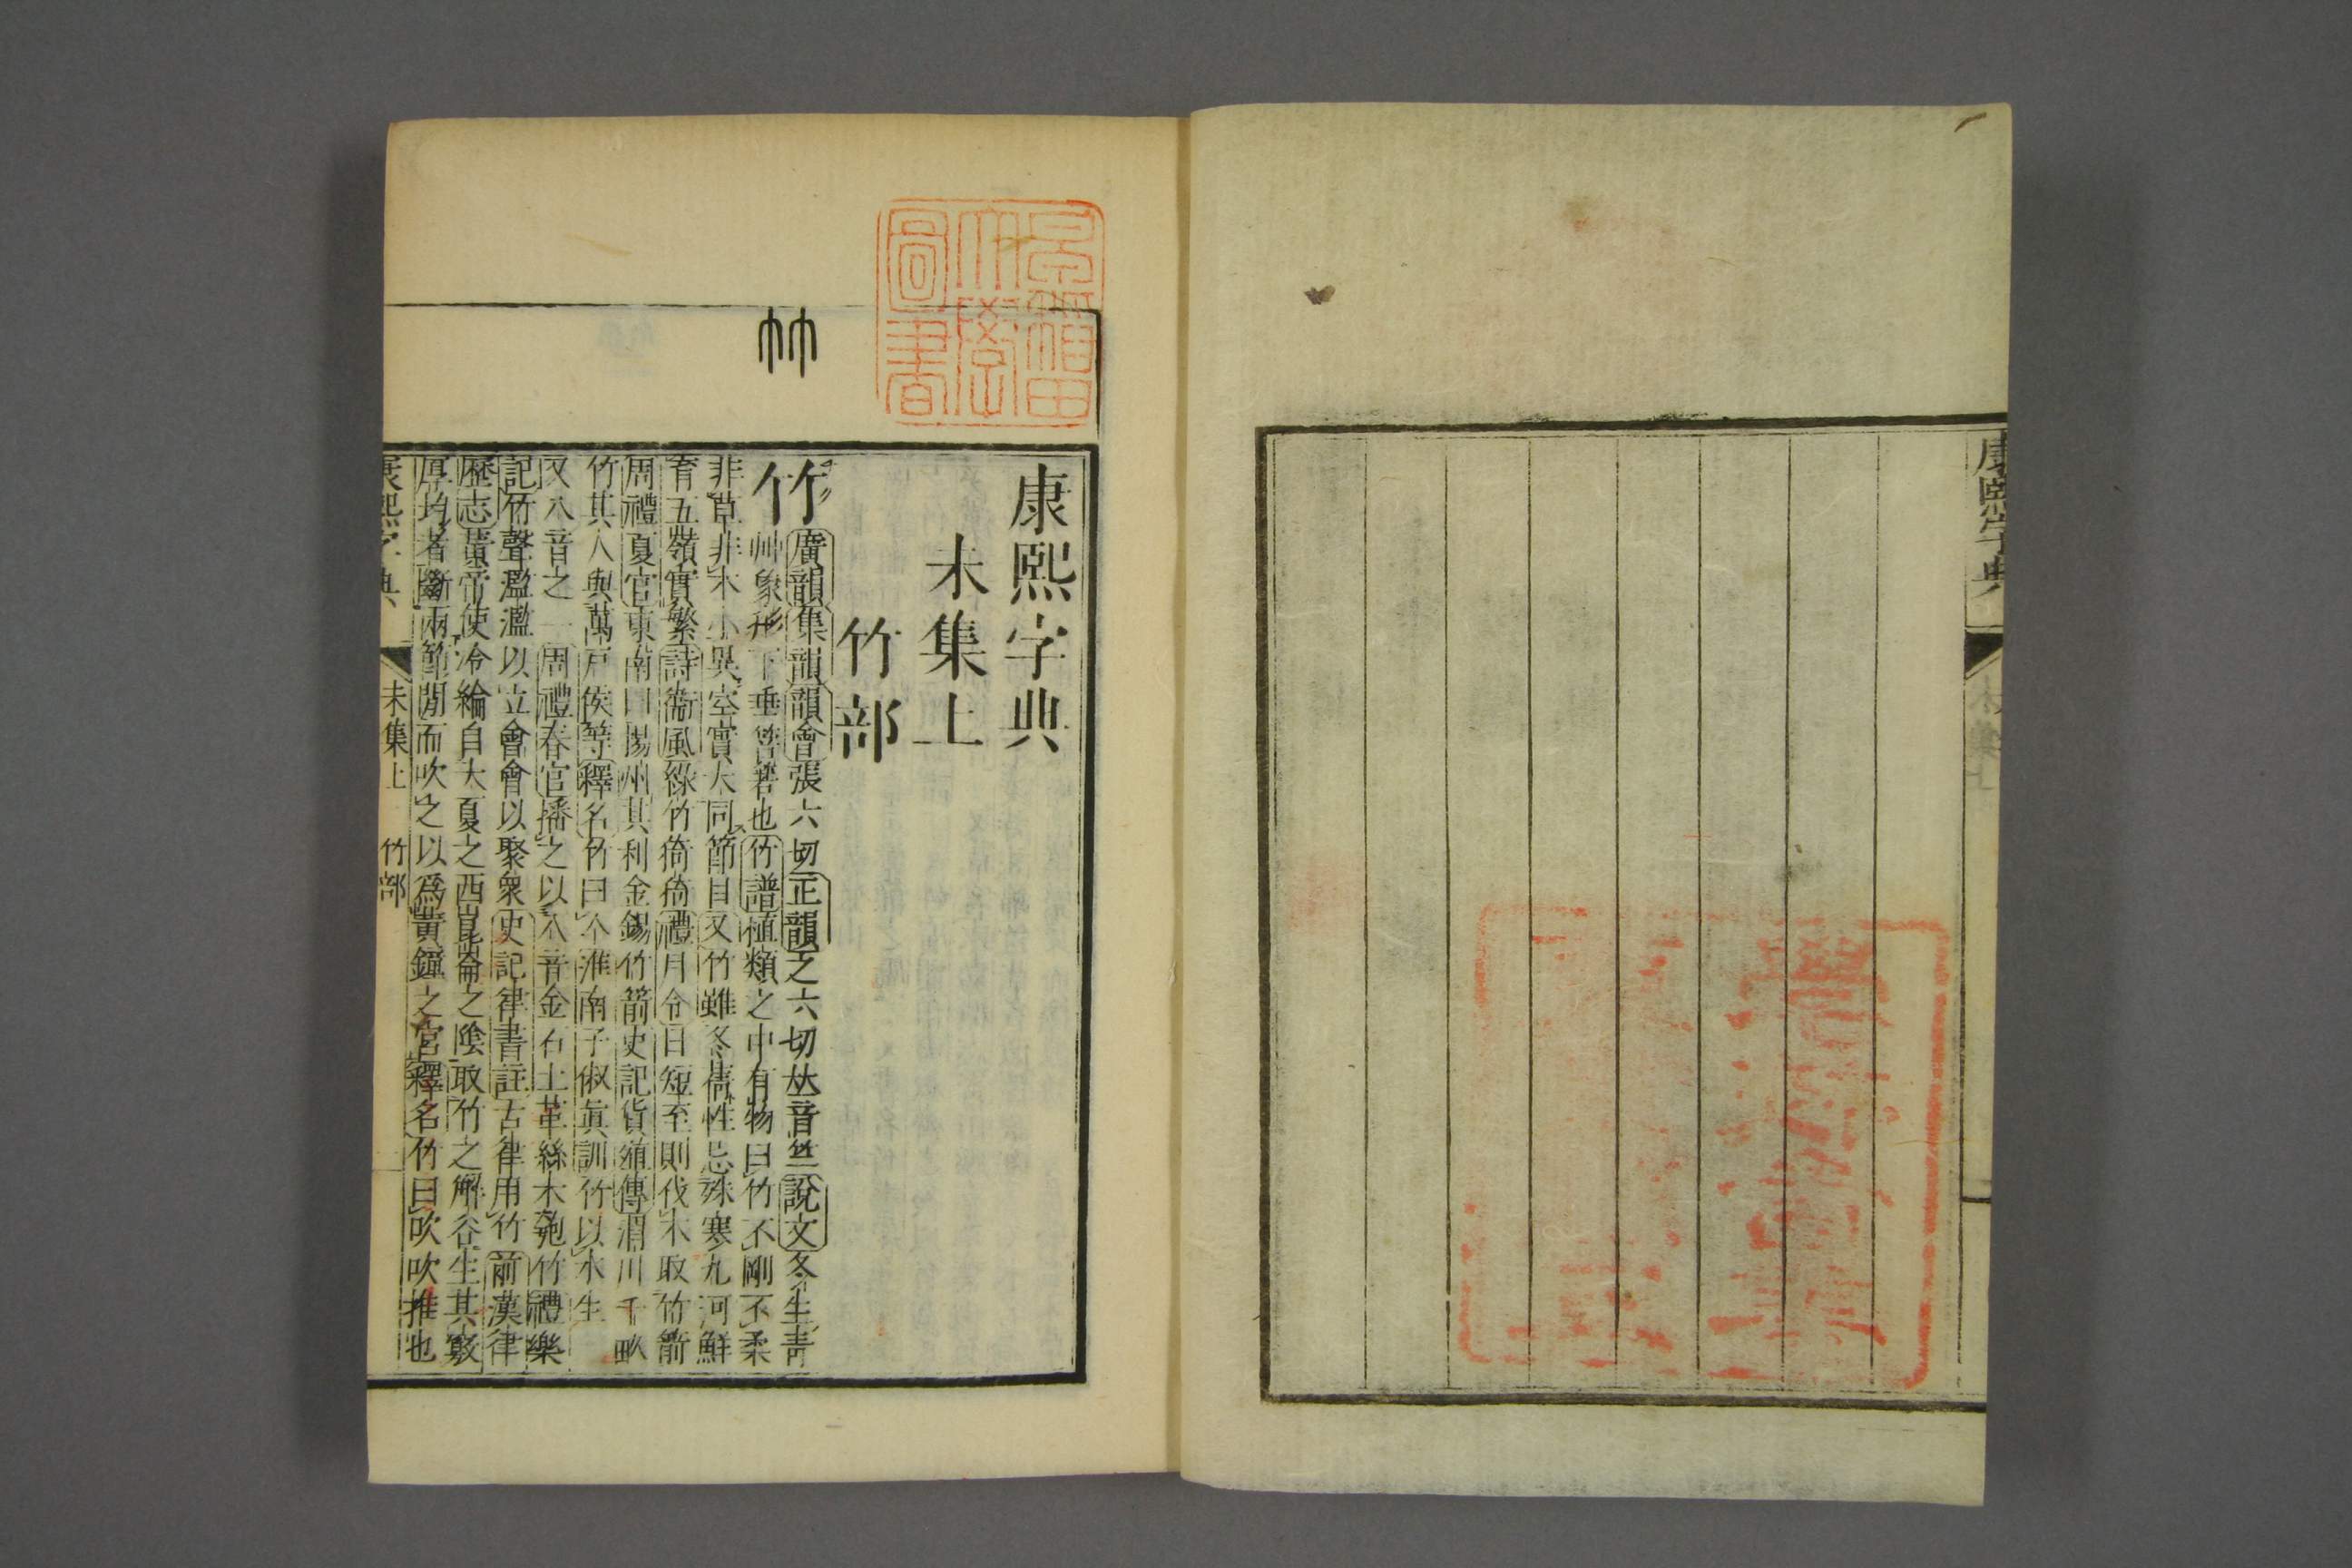 康熙字典
早稻田大學圖書
康熙字典
未集上
竹部
竹
竹
廣韻集韻韻會張六切正韻之六切𠀤音竺說文冬生靑
艸象形下垂箁箬也竹譜植類之中有物曰竹不剛不柔
非草非木小異空實大同節目又竹雖冬蒨性忌殊寒九河鮮
育五嶺實繁詩衞風綠竹猗猗禮月令日短至則伐木取竹箭
周禮夏官東南曰揚州其利金錫竹箭史記貨殖傳渭川千畝
竹其人與萬戸侯等釋名竹曰个淮南子俶眞訓竹以水生
又八音之一周禮春官播之以八音金石土革絲木匏竹禮樂
記竹聲濫濫以立會會以聚衆史記律書註古律用竹前漢律
歷志黃帝使泠綸自大夏之西崑崙之隂取竹之解谷生其竅
厚均者斷兩節閒而吹之以爲黃鐘之宮釋名竹曰吹吹推也
康熙字典
未集上
竹部